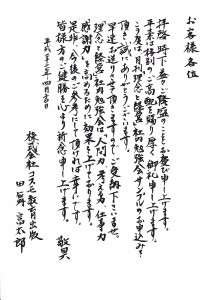 お客様各位
拝啓 時下益々ご隆盛のこととお慶び申し上げます。
平素は格別のご高配を賜り厚く御礼申し上げます。
この度は、月刊理念と経営 社内勉強会サンプルのお申込みを
頂き、誠にありがとうございます。
早速、お送りさせて頂きますので、ご査収下さいませ。
理念と経営 社内勉強会は、「人間力、考える力、仕事力
感謝力」を高めるために効果を上げております。
是非、今後のご参考にして頂ければ幸いです。
皆様方のご健勝を心より祈念申し上げます。
敬具
平成二十 年 四月 吉日
株式会社コスモ教育出版
田舞 富太郎